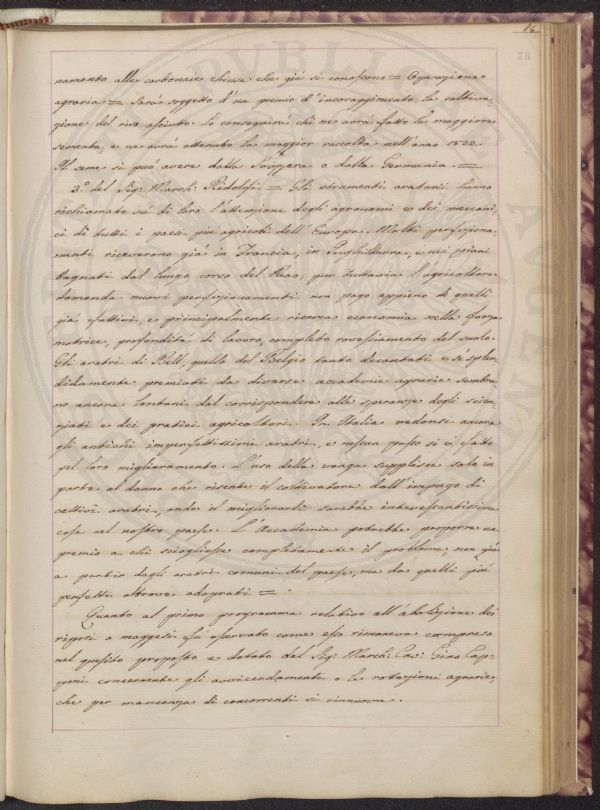 14
28
namento alle carbonaie chiusa che già si conoscono = Operazione
agraria = Sarà soggetto d'un premio d'incoraggimento la coltiva-
zione del riso asciutto lo conseguirà chi ne avrà fatto la maggiore
sementa, e ne avrà ottenuto la maggior raccolta nell'anno 1822.
Il seme si può avere dalla Svizzera o dalla Germania. =
3.° del Sig: March: Ridolfi = Gli strumenti aratorî hanno
richiamato su di loro l'attenzione degli agronomi e dei meccani-
ci di tutti i paesi più agricoli dell'Europa. Molti perfeziona-
menti riceverono già in Francia, in Inghilterra, e nei piani
bagnati dal lungo corso del Reno, pur tuttavia l'agricoltore
domanda nuovi perfezionamenti non pago appieno di quelli
già fattivi, e principalmente ricerca economia nella forza
motrice, profondità di lavoro, completo rovesciamento del suolo.
Gli aratri di Bell, quello del Belgio tanto decantati e sì splen-
didamente premiati da diverse accademie agrarie sembra-
no ancora lontani dal corrispondere alle speranze degli scien-
ziati e dei pratici agricoltori. In Italia vedonsi ancora
gli antichi imperfettissimi aratri, e nessun passo si è fatto
pel loro miglioramento. L'uso della vanga supplisce solo in
parte al danno che risente il coltivatore dall'impiego di
cattivi aratri, onde il migliorarli sarebbe interessantissima
cosa nel nostro paese. L'Accademia potrebbe proporre un
premio a chi sciogliesse completamente il problema, non già
a partir dagli aratri comuni del paese, ma da quelli più
perfetti altrove adoprati =
Quanto al primo programma relativo all'abolizione dei
riposi o maggesi fù osservato come esso rimaneva compreso
nel quesito proposto e dotato dal Sig: March: Cav: Gino Cap-
poni concernente gli avvicendamenti o le rotazioni agrarie,
che per mancanza di concorrenti si rinnuova.